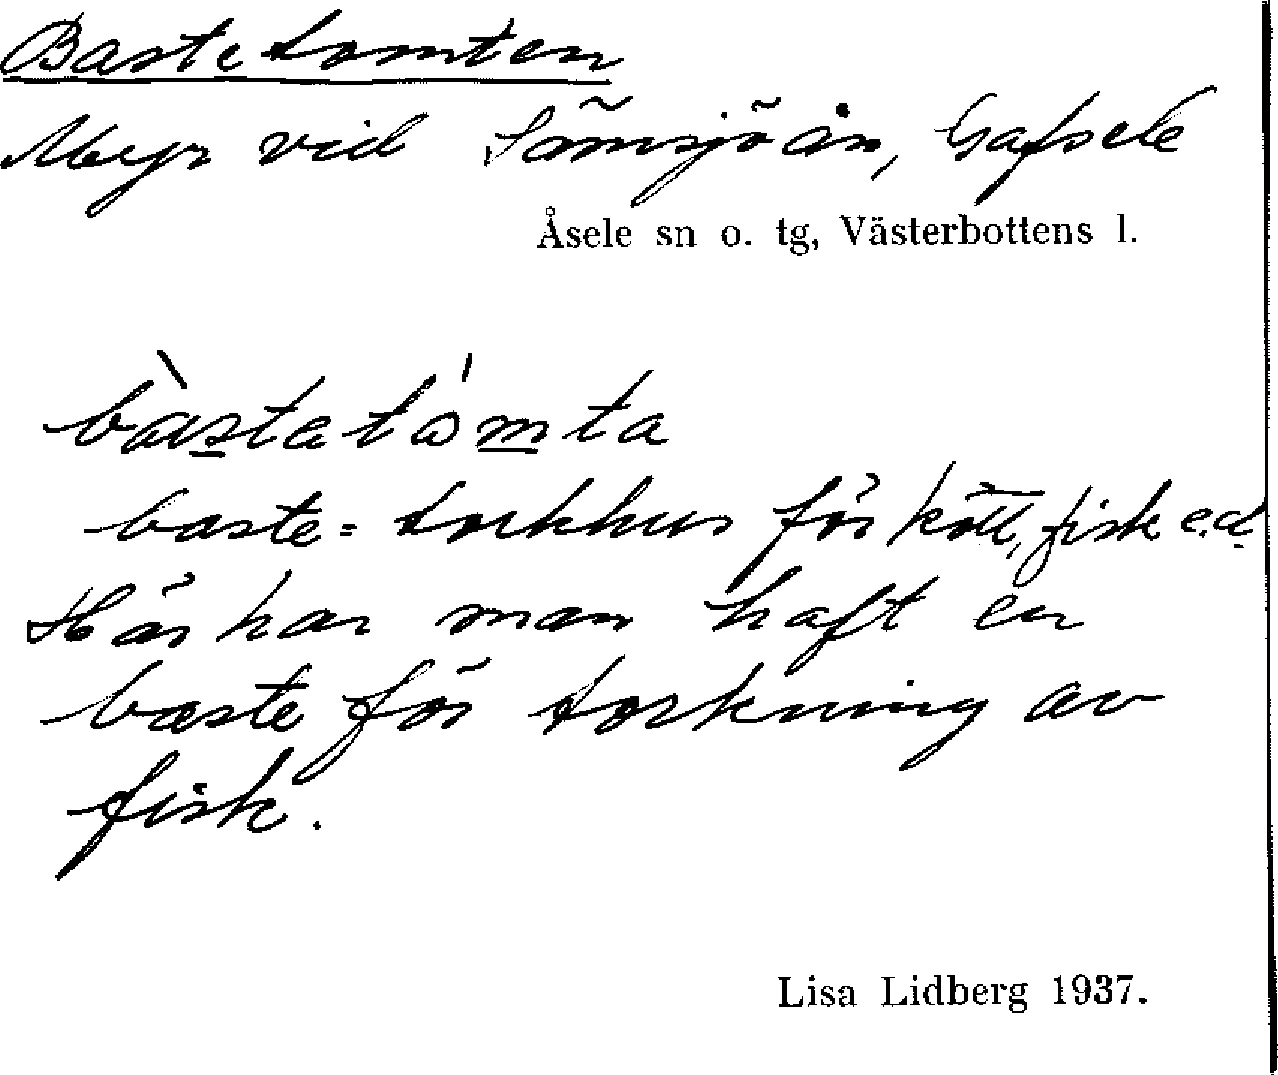 Bastetomten
Myr vid Sömsjöån, Gafsele
Åsele sn o. tg, Västerbottens l.
bàstató́mta
baste = torkhus för kött, fisk e.d.
Här har man haft en
baste för torkning av
fisk.
Lisa Lidberg 1937.